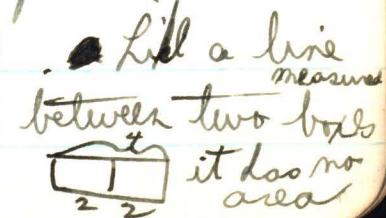 a line
measures
between two boxes
4
it has no
2 2 area